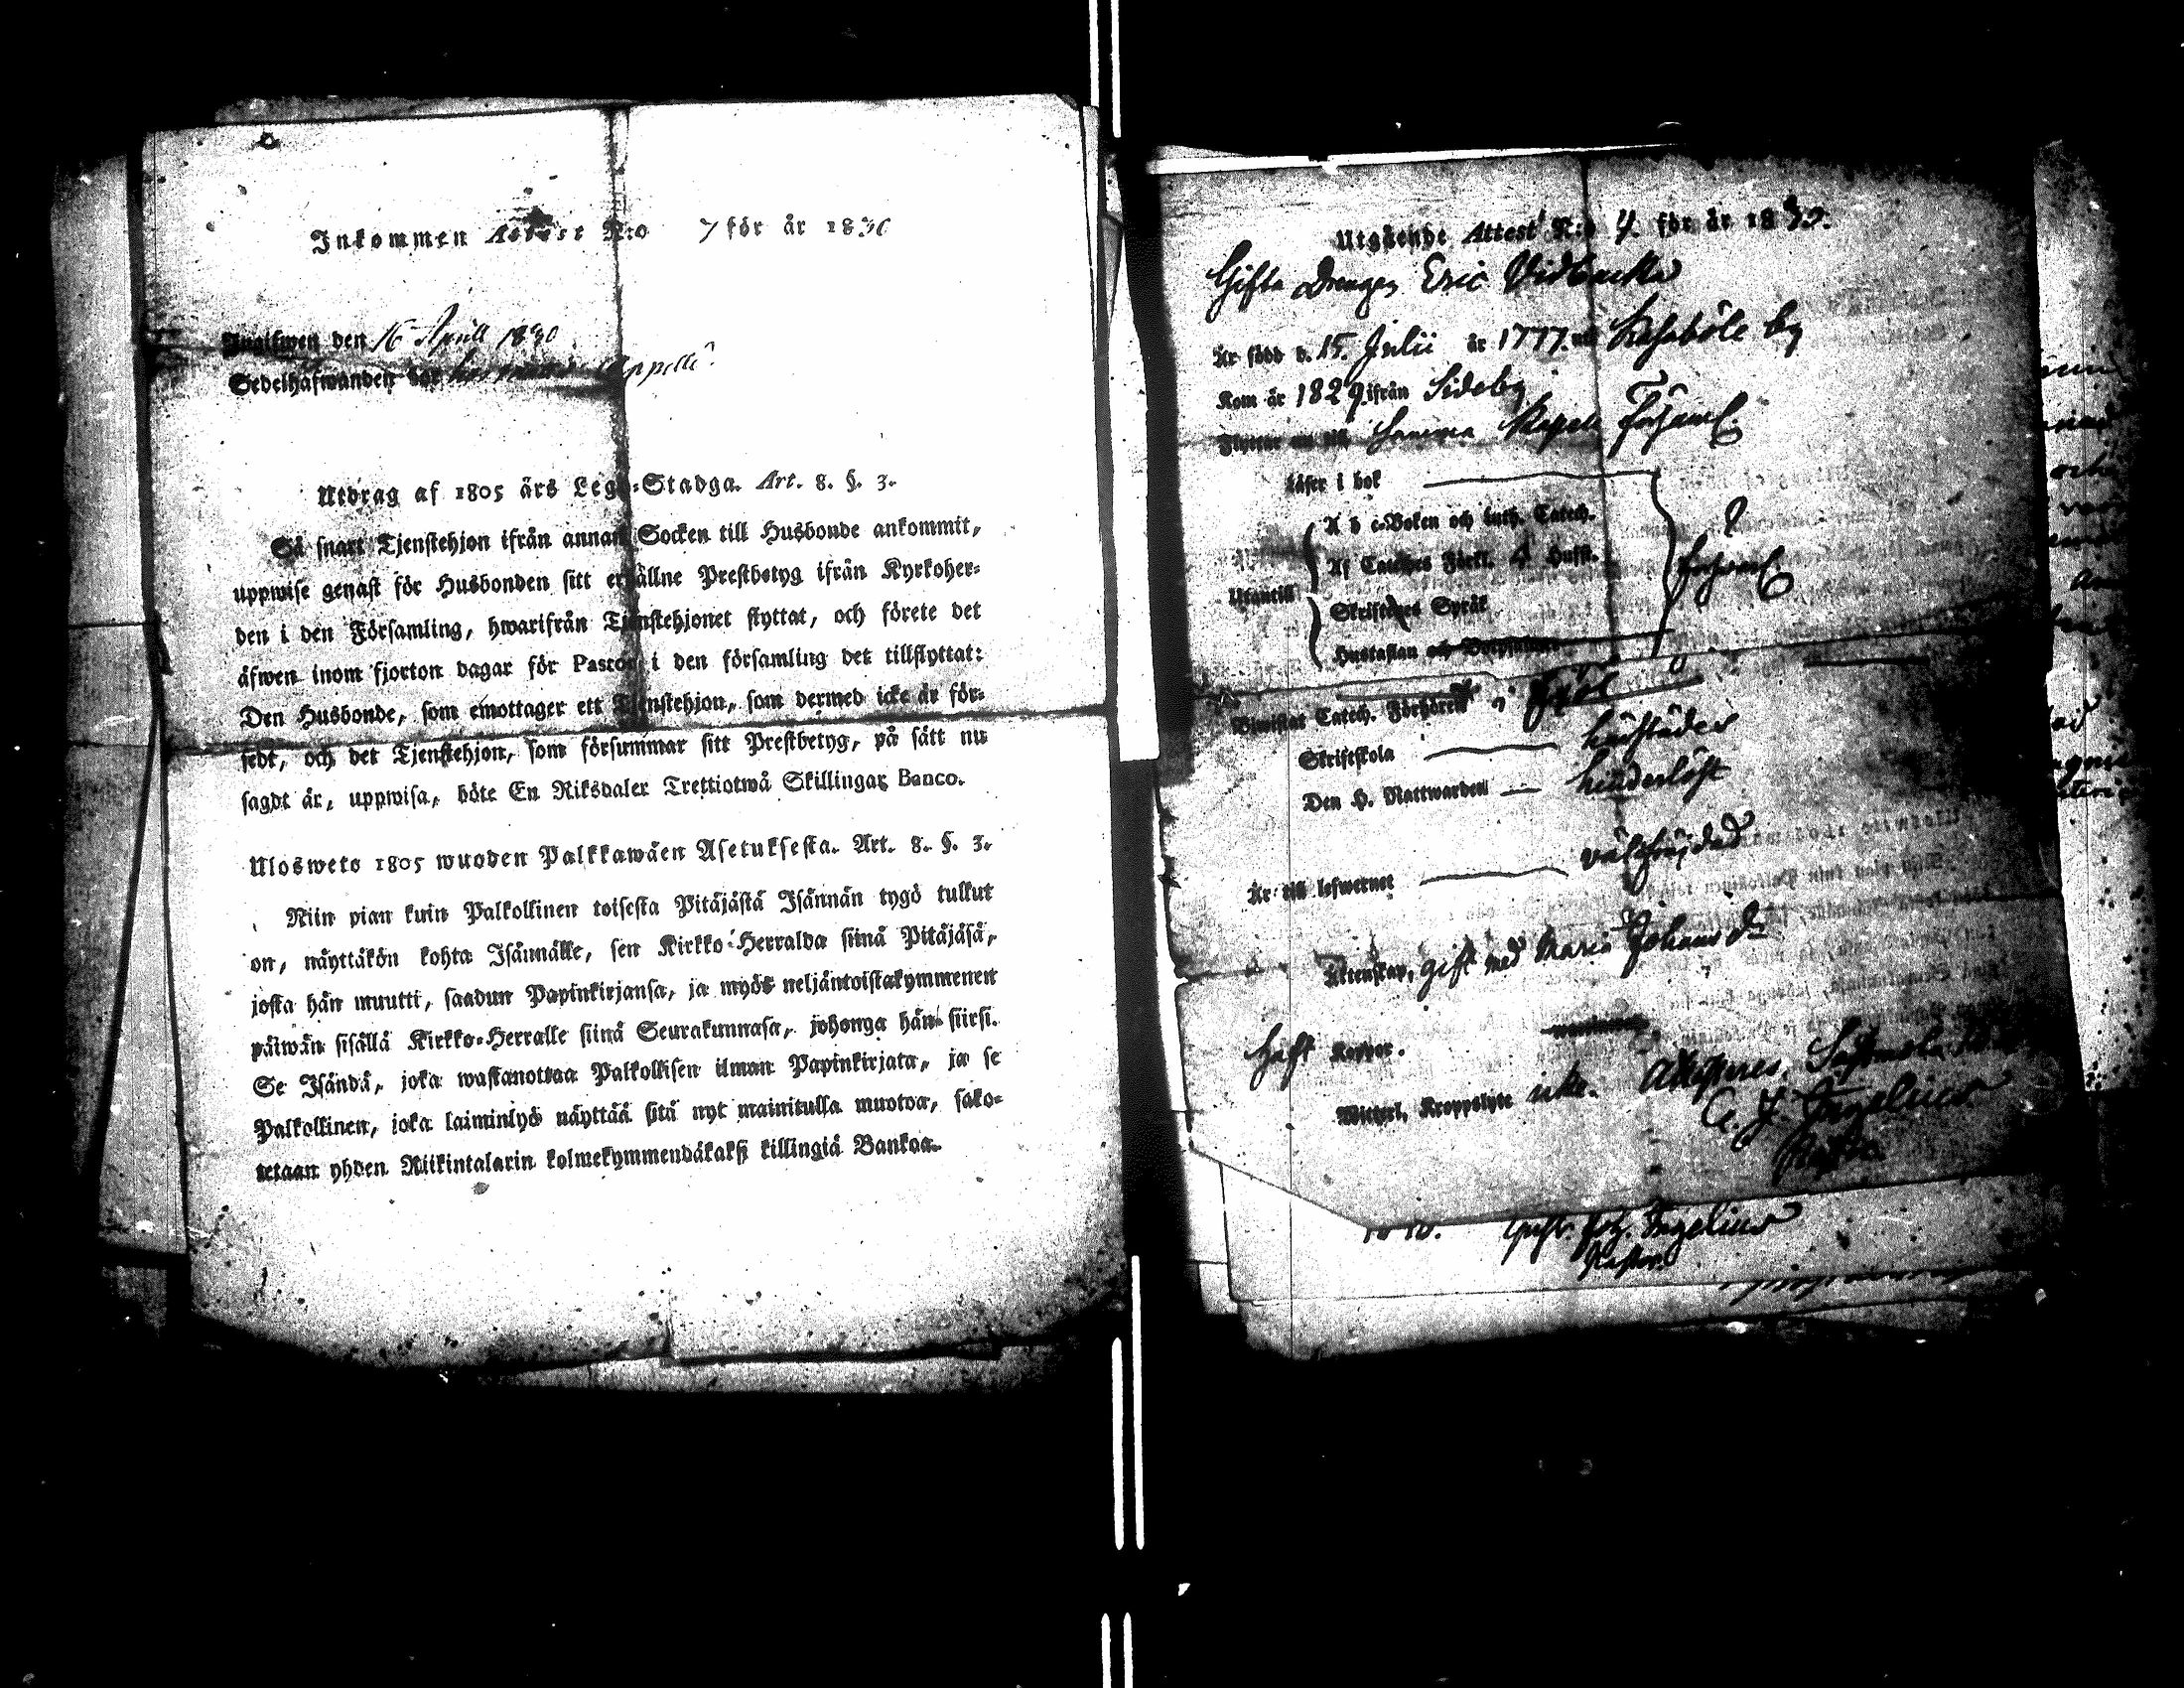 Inkommen Attest N:o 7 för år 1830
Ingifwen den 16 Aprill 1830
Sedelhafwanden
Utdrag af 1805 års Lego-Stadga. Art. 8. §. 3.
Så snart Tjenstehjon ifrån annan Socken till Husbonde ankommit,
uppwise genast för Husbonden sitt erhållne Prestbetyg ifrån Kyrkoher-
den i den Församling, hwarifrån Tjenstehjonet flyttat, och förete det
äfwen inom fjorton dagar för Pastor i den församling det tillflyttat:
Den Husbonde, som emottager ett Tjenstehjon, som dermed icke är för-
sedt, och det Tjenstehjon, som försummar sitt Prestbetyg, på sätt nu
sagdt är, uppwisa, böte En Riksdaler Trettiotwå Skillingar Banco.
Ulosweto 1805 wuoden Palkkawäen Asetuksesta. Art. 8. §. 3.
Niin pian kuin Palkollinen toisesta Pitäjästä Isännän tygö tullut
on, näyttäkön kohta Isännälle, sen Kirkko-Herralda siinä Pitäjäsä,
josta hän muutti, saadun Papinkirjansa, ja myös neljäntoistakymmenen
päiwän sisällä Kirkko-Herralle siinä Seurakunnasa, johonga hän siirsi.
Se Isändä, joka wastanottaa Palkollisen ilman Papinkirjata, ja se
Palkollinen, joka laiminlyö näyttää sitä nyt mainitulla muotoa, sako-
tetaan yhden Riikintalarin kolmekymmendäkaksi killingiä Bankoa.
Utgående Attest N:o 4. för år 1830.
Gifta Drengen Eric Widbacka
Är född d. 15. Julii år 1777. uti by
Kom år 1829 ifrån Sideby
Flyttar nu till samma Kapell Församl.
Läser i bok
Utantill
A b c-Boken och Luth. Catech.
Af Cateches Förkl. 4 Hufst.
Skriftenes Språk
Hustaflan och Botpsalmer
försvarl.
Biwistat Catech. Förhören
Skriftskola härstädes
Den H. Nattwarden hinderlöst
Är till lefwernet välfräjdad
Äktenskap, gift med Maria Johans dr
Haft Koppor.
Witterl. Kroppslyte icke. Attesteres,
Pastor
Gust. Joh. Ingelius
Pastor.